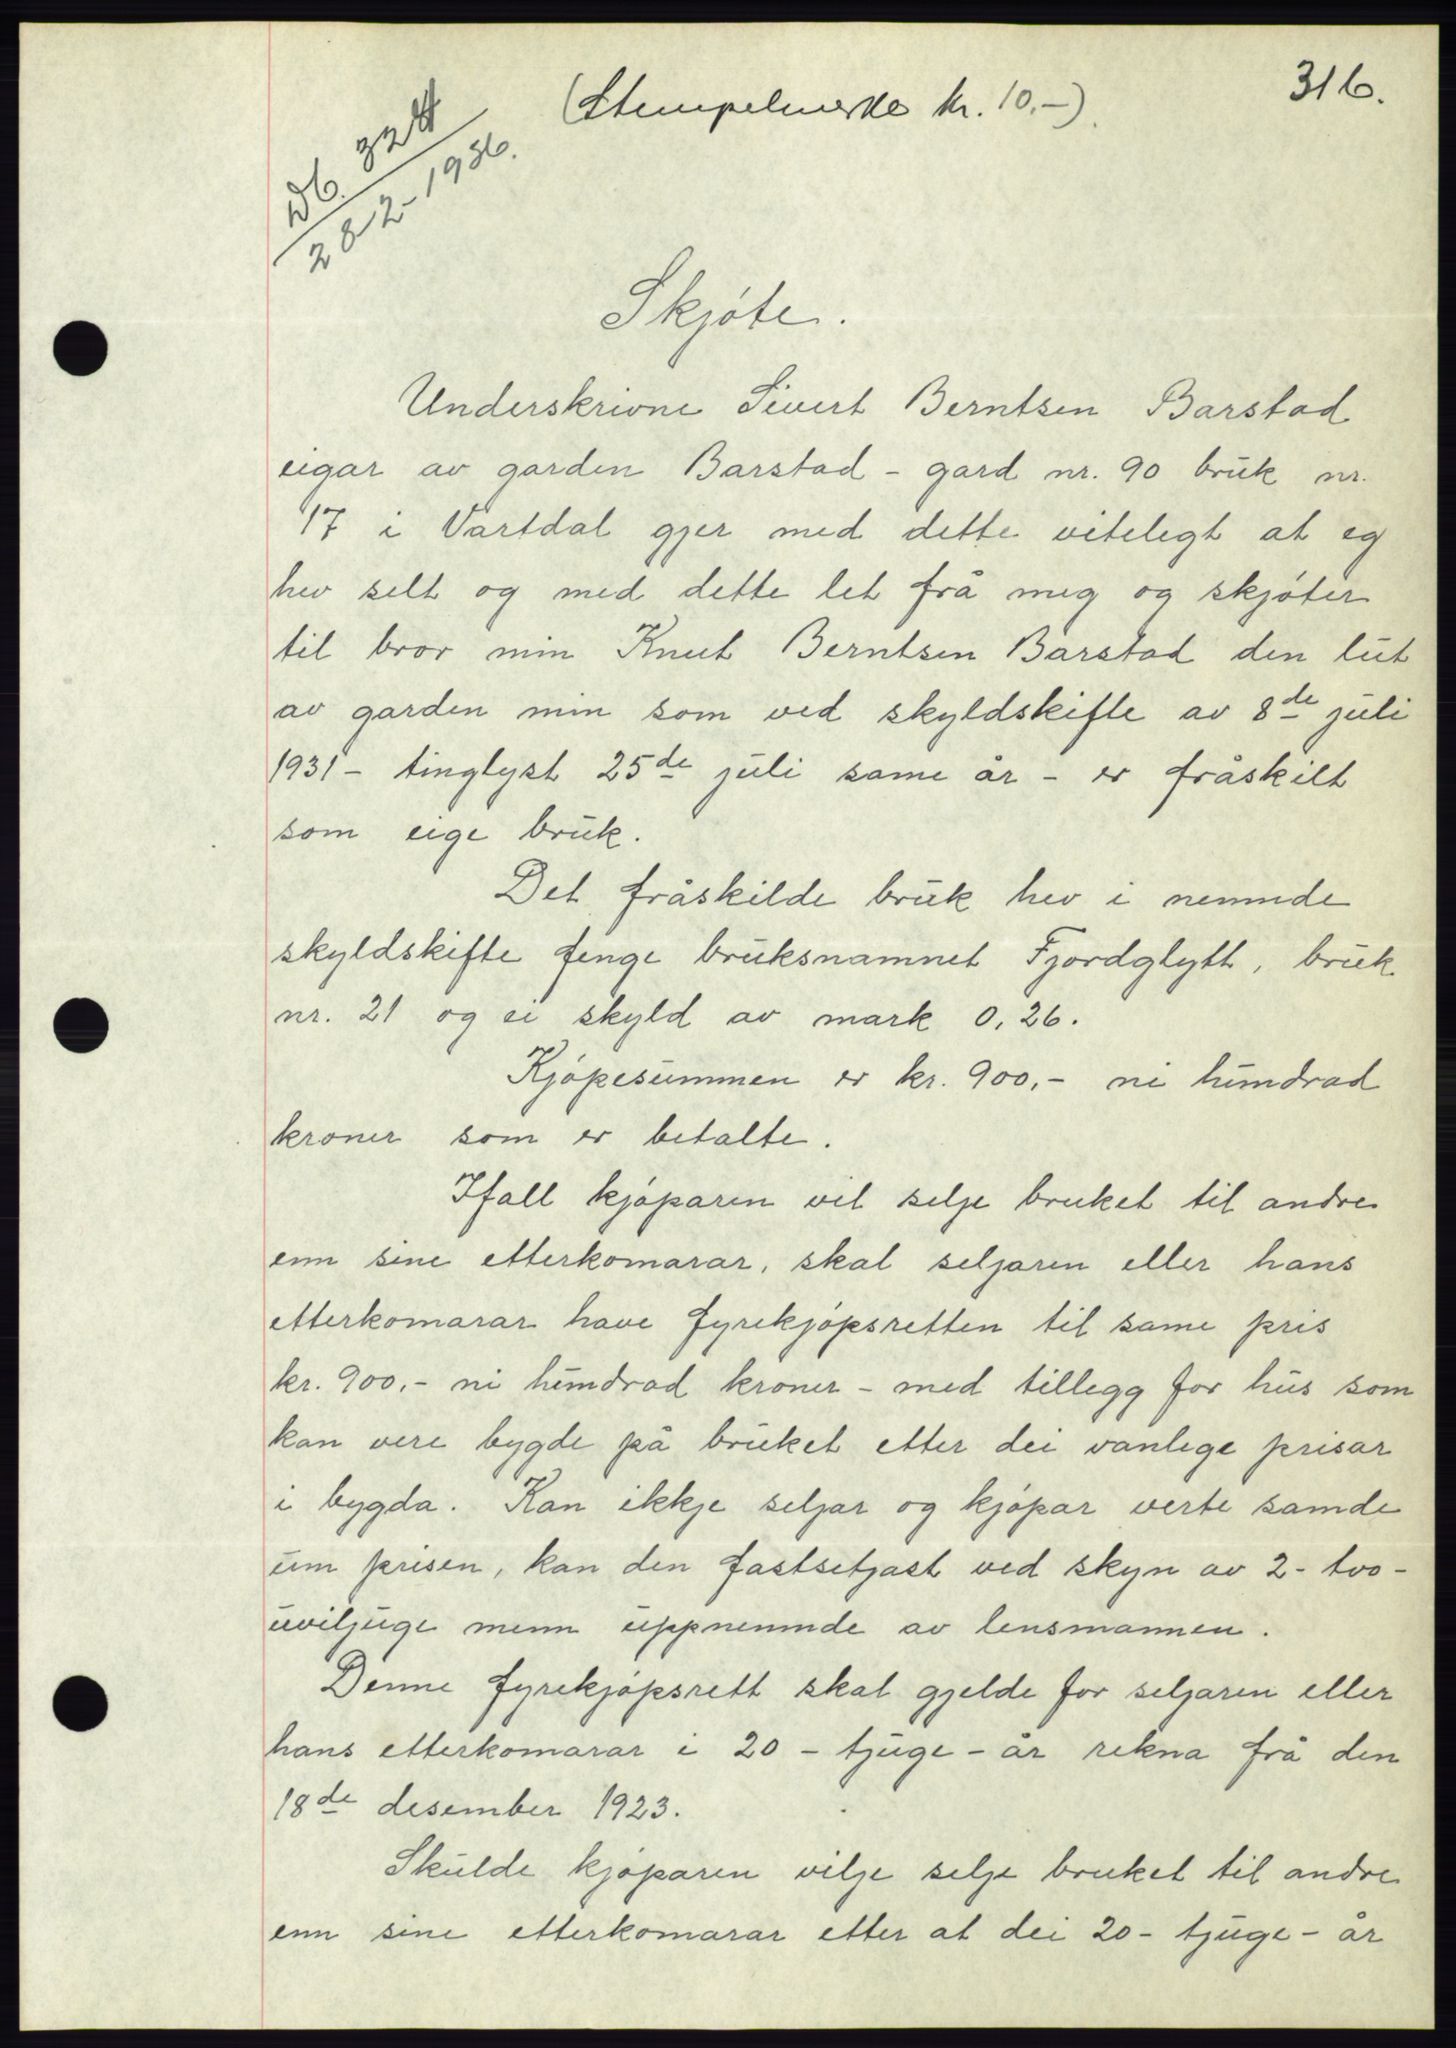 316.
(Stempelmerke kr. 10.-)
Db. 324
28-2-1936.
Skjóte.
Underskrivne Sivert Berntsen Barstad
eigar av garden Barstad - gard nr. 90 bruk nr.
17 i Vartdal gjer med dette vitelegt at eg
hev selt og med dette let frå meg og skjóter
til bror min Knut Berntsen Barstad den lut
av garden min som ved skyldskifte av 8de juli
1931 - tinglyst 25de juli same år - er fråskilt
som eige bruk.
Det fråskilde bruk hev i nemnde
skyldskifte fenge bruksnamnet Fjordglytt, bruk
nr. 21 og ei skyld av mark 0,26.
Kjópesummen er kr. 900,- ni hundrad
kroner som er betalte.
Ifall kjóparen vil selje bruket til andre
enn sine etterkomarar, skal seljaren eller hans
etterkomarar have fyrekjópsretten til same pris
kr. 900.- ni hundrad kroner - med tillegg for hus som
kan vere bygde på bruket etter dei vanlege prisar
i bygda. Kan ikkje seljar og kjópar verte samde
um prisen, kan den fastsetjast ved skyn av 2- tvo-
uviljuge menn uppnemnde av lensmannen.
Denne fyrekjópsrett skal gjelde for seljaren eller
hans etterkomarar i 20 - tjuge - år rekna frå den
18de desember 1923.
Skulde kjóparen vilje selje bruket til andre
enn sine etterkomarar etter at dei 20- tjuge - år